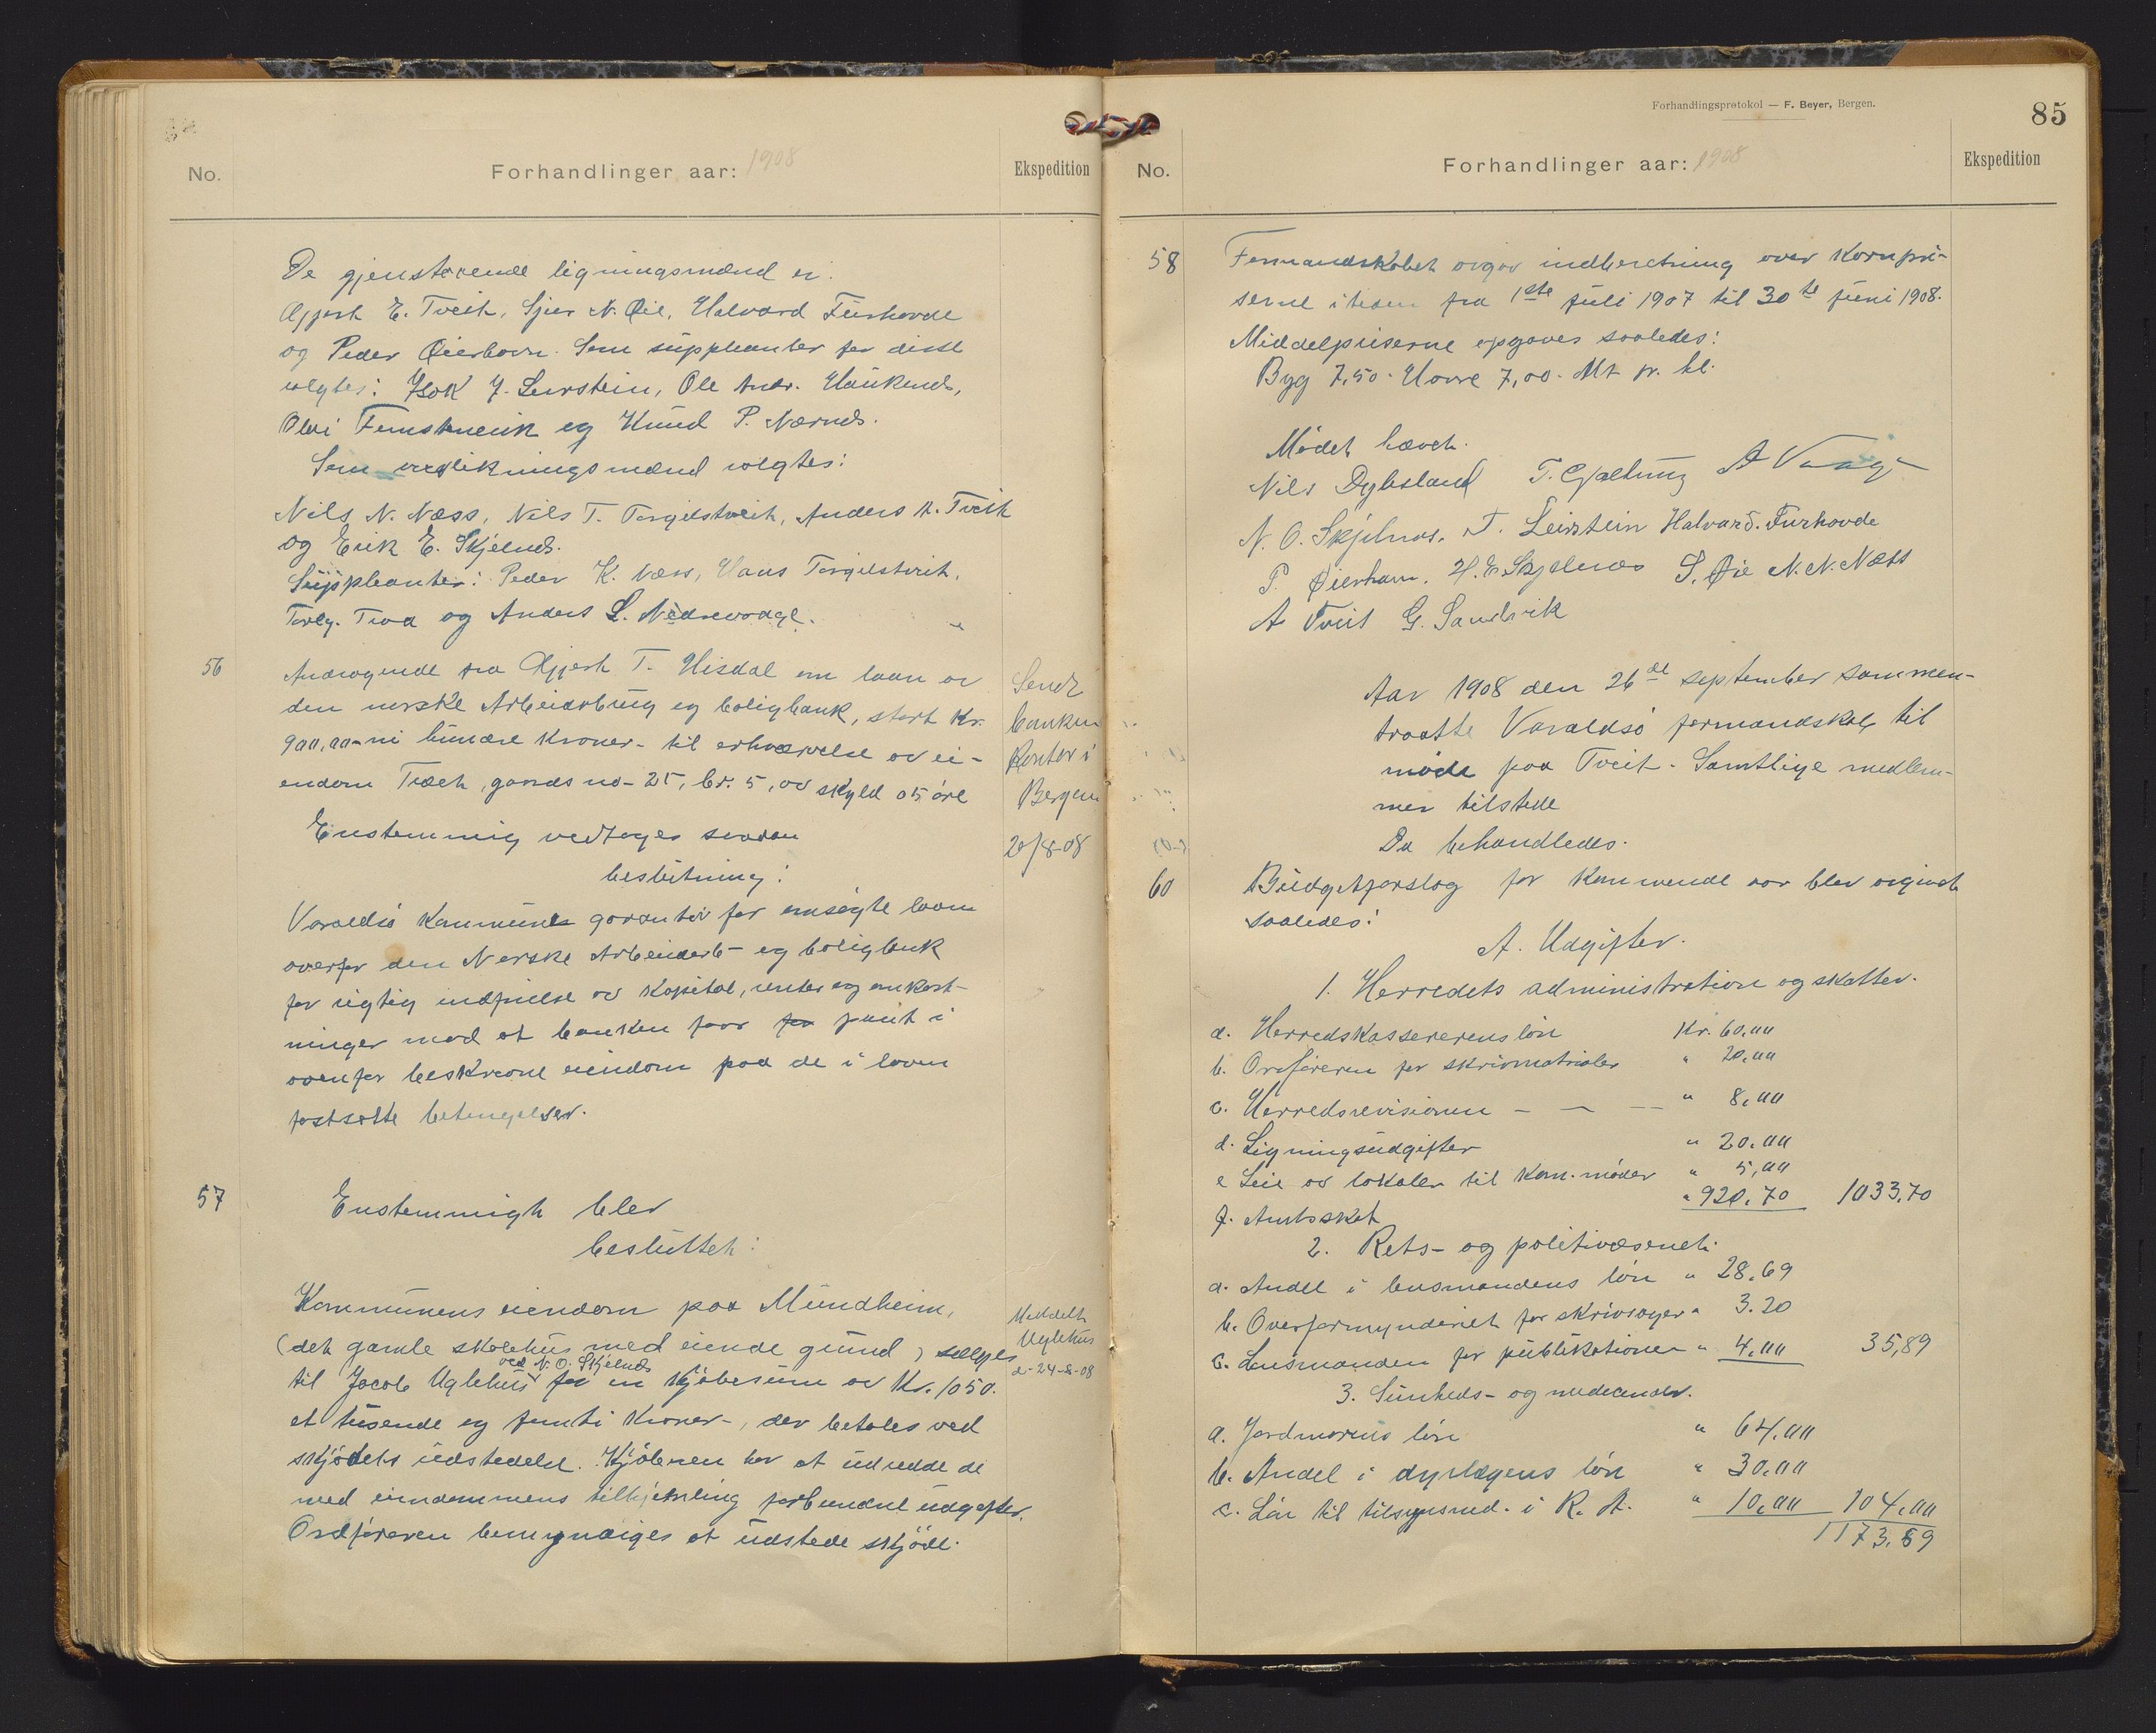 No.
Forhandlinger aar: 1908
Ekspedition
De gjenstaaende ligningsmænd er:
Asgjerh E. Tveit, Sjur N. Øie, Halvard Furhovde
og Peder Øierhavn. Som suppleanter for disse
valgtes: Isak J. Leirstein, Ole Andr. Haukenæs,
Olai Femsteneik og Knud P. Nernæs.
Som overlikningsmænd valgtes:
Nils N. Næss, Nils T. Torgilstveit, Anders A. Tveit
og Erik E. Skjelnæs.
Suppleanter: Peder K. Næss, Hans Torgilstveit,
Torlg. Tvea og Anders L. Nedrevaage.
56
Andragende fra T. Hisdal om laan av
den norske Arbeiderbrug og boligbank, stort kr.
900,00 - ni hundre kroner - til erhvervelse av ei-
endom Træet, gaards no- 25, br. 5, av skyld 05 øre
Enstemmig vedtoges saadan
beslutning:
Varaldsø kommune garanterer for ansøgte laan
overfor den Norske Arbeiderb- og boligbank
for rigtig indfrielse av kapital, renter og omkost-
ninger mod at banken faar for pant i
ovenfor beskrevne eiendom paa de i loven
fastsatte betingelser.
Sendt
banken
Kontor i
Bergen
20/8-08
57
Enstemmigh blev
besluttet:
Kommunens eiendom paa Mundheim,
(det gamle skolehus med eiende grund) sælges
ved N. O. Skjelnæs
til Jacob Uglehus for en kjøbesum av Kr. 1050.
et tusende og femti kroner -, der betales ved
skjødets udstedelse. Kjøberen har at udrede de
med eiendommens tilhjemling forbundne udgifter.
Ordføreren bemyndiges at udstede skjøde.
Meddelt
Uglehus
d- 24-8-08
Forhandlingsprotokol — F. Beyer, Bergen.
85
No.
Forhandlinger aar: 1908
Ekspedition
58
Formandskabet avgav indberetning over kornpri-
serne i tiden fra 1ste juli 1907 til 30te juni 1908.
Middelpriserne opgaves saaledes:
Byg 7,50 - Havre 7,00. Alt pr. hl.
Mødet hævet.
Nils Dybsland T. Gjeltung A Vaage
N. O. Skjelnæs. J. Leirstein Halvard. Furhovde
P. Øierhavn. H. E. Skjelnæs S. Øie N. N. Næss
A Tveit G. Sandvik
Aar 1908 den 26de september sammen-
traatte Varaldsø formandskab til
møde paa Tveit. Samtlige medlem-
mer tilstede
Da behandledes.
60
Budgetforslag for kommende aar blev avgivet
saaledes:
A. Udgifter.
1. Herredets administration og skatter.
a. Herredskassererens løn Kr. 60,00
b. Ordføreren for skrivmatrialer " 20,00
c. Herredsrevisionen - - - " 8,00
d. Ligningsudgifter " 20,00
e Leie av lokaler til kom. møder " 5,00
f. Amtsskat " 920,70 1033,70
2. Rets- og politivæsenet.
a. Andel i lensmandens løn " 28,69
b. Overformynderiet for skrivsager " 3.20
c. Lensmanden for publikationer " 4,00 35,89
3. Sunheds- og medicinalv.
a. Jordmorens løn " 64,00
b. Andel i dyrlægens løn " 30,00
c. Løn til tilsynsmd. i R. A. " 10,00 104,00
1173,59